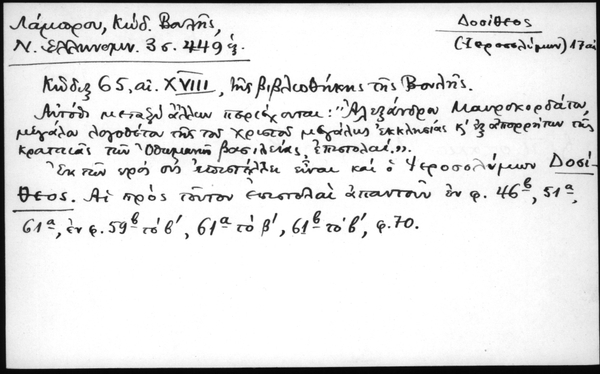 Λάμπρου, Κώδ. Βουλῆς,
Ν. Ἑλληνομν. 3 σ. 449 ἑξ.
Δοσίθεος
(Ἱεροσολύμων) 17 αἰ
Κῶδιξ 65, αἰ. XVIII, τῆς βιβλιοθήκης τῆς Βουλῆς.
Αὐτόθι μεταξὺ ἄλλων περιέχονται: "Ἀλεξάνδρου Μαυροκορδάτου,
μεγάλου λογοθέτου τῆς τοῦ Χριστοῦ μεγάλης ἐκκλησίας κ' ἐξ ἀπορρήτων τῆς
κραταιᾶς τῶν Ὀθωμανῶν βασιλείας, ἐπιστολαί,".
Ἐκ τῶν πρὸς οὓς ἐπιστέλλει εἶναι καὶ ὁ Ἱεροσολύμων Δοσί-
θεος. Αἱ πρὸς τοῦτον ἐπιστολαὶ ἀπαντοῦν ἐν φ. 46β, 51α,
61α, ἐν φ. 59β τὸ β', 61α τὸ β', 61β τὸ β', φ. 70.